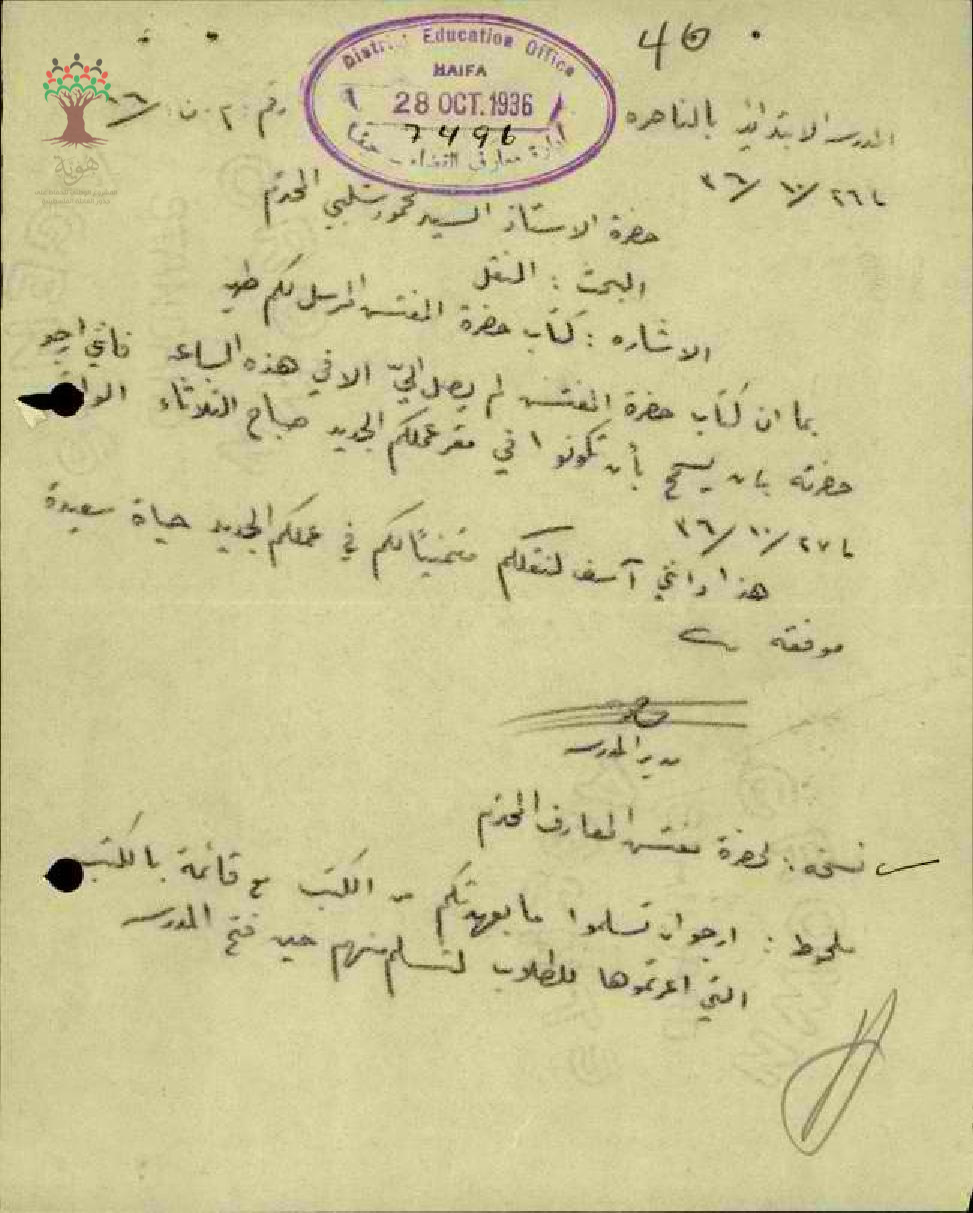 46
District Education Office
HAIFA
28 OCT. 1936
7496
ادارة معارف القضاء - حيفا
هوية
المدرسه الابتدائيه بالناصره
رقم: ٢٠ن:
٢٦/١٠/٣٦
حضرة الاستاذ السيد محمود شلبي المحترم
البحث: النقل
الاشاره: كتاب حضرة المفتش المرسل لكم طيه
بما ان كتاب حضرة المفتش لم يصل اليّ الا في هذه الساعه فاني ارجو
حضرته بان يسمح بأن تكونوا في مقر عملكم الجديد صباح الثلاثاء الواقع
٢٧/١٠/٣٦
هذا وانني آسف لنقلكم متمنيًا لكم في عملكم الجديد حياة سعيدة
موفقه
مدير المدرسه
نسخه: لحضرة مفتش المعارف المحترم
ملحوظ: ارجو ان تسلموا ما بعهدتكم من الكتب مع قائمة بالكتب
التي اعرتموها للطلاب لتسلم منهم حين فتح المدرسه